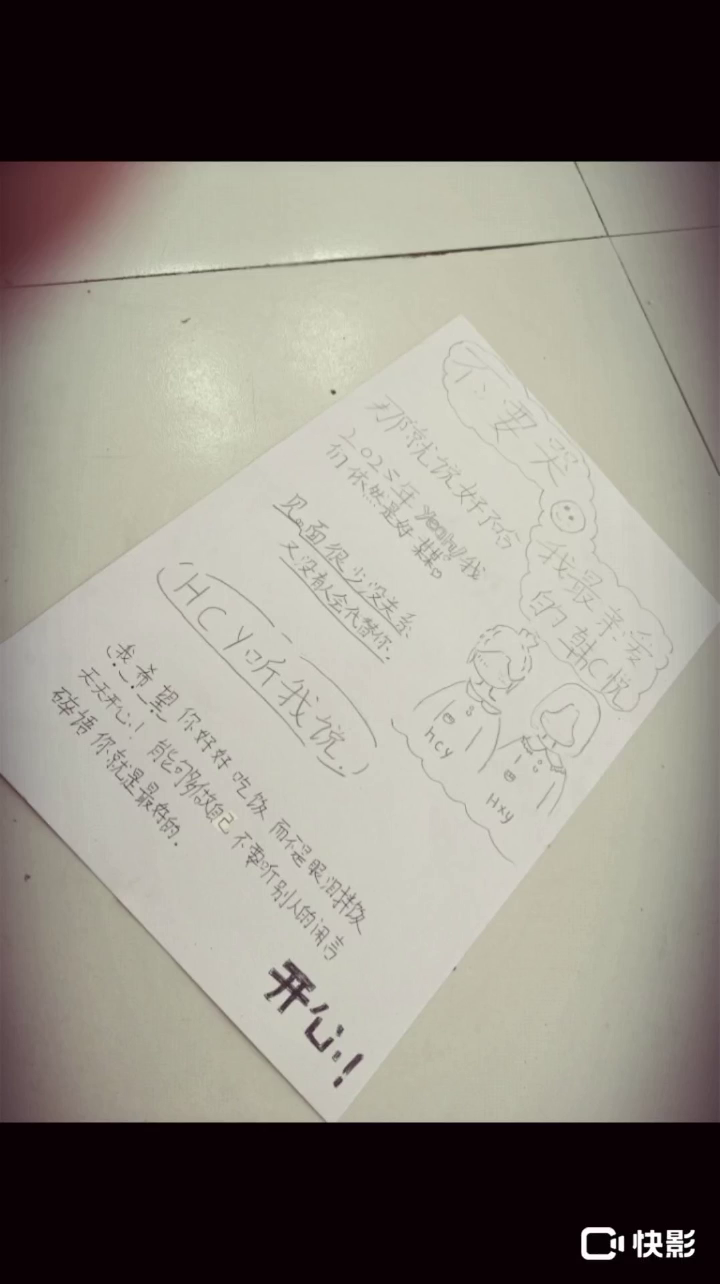 不要哭
我最亲爱
的韩C悦
那就说好了哈
2023年yeahy我
们依然是好。
见面很少没关系
又没有人会代替你.
hcy
Hxy
HCY听我说.
我希望你好好吃饭 而不是眼泪拌饭
天天开心!能够做自己 不要听别人的闲言
碎语你就是最好的.
开心!
快影